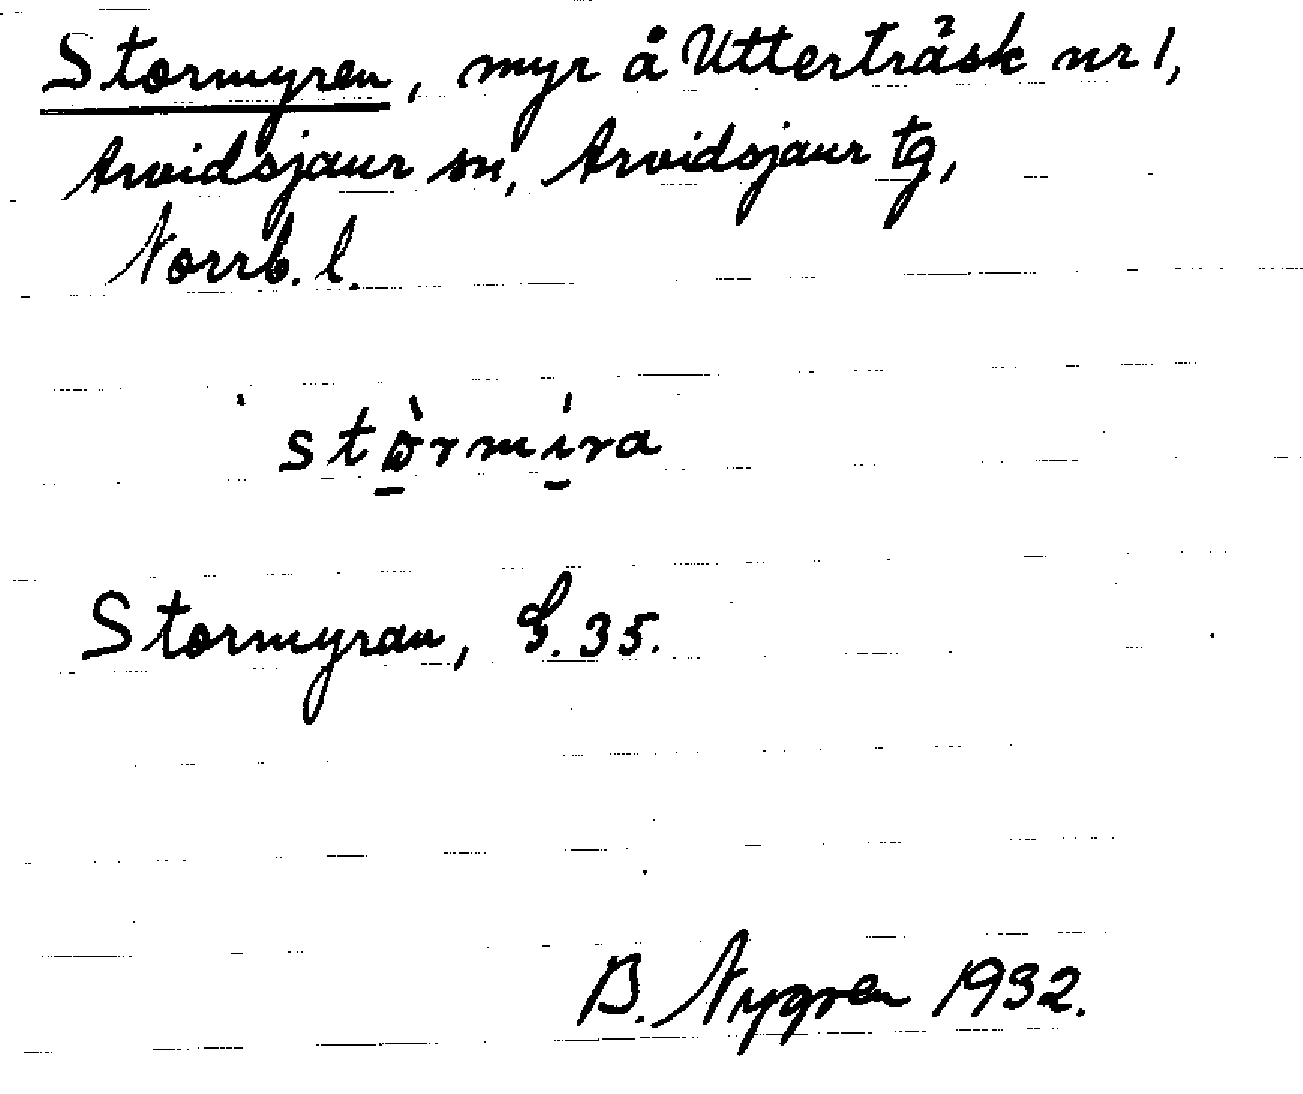 Stormyren, myr å Utterträsk nr 1,
Arvidsjaur sn, Arvidsjaur tg,
Norrb. l.
stòrmíra
Stormyran, S. 35.
B. Nygren 1932.